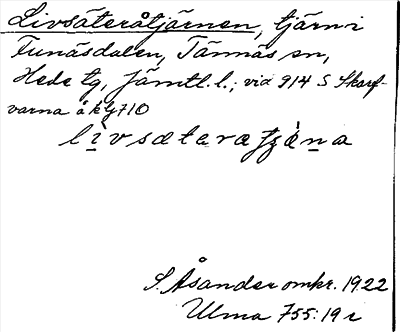 Livsäteråtjärnen, tjärn i
Funäsdalen, Tännäs sn,
Hede tg, Jämtl. l.; vid 914 S Skarf-
varna å k bj 710
lìvsæteratjæ̀ṇa
S. Åsander omkr. 1922
Ulma 755:19 r